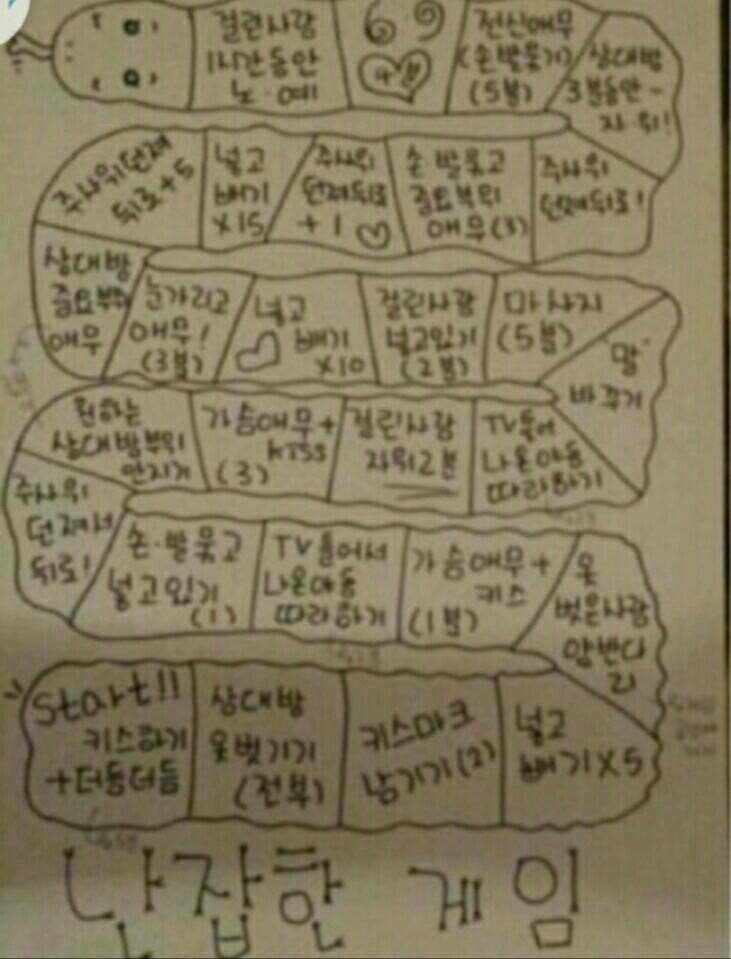 Start!!
키스하기
+더듬더듬
상대방
옷벗기기
(전부)
키스마크
남기기(2)
넣고
빼기X5
옷
벗은사람
앞반다
리
가슴애무+
키스
(1분)
TV틀어서
나온야동
따라하기
손·발묶고
넣고있기
(1)
주사위
던져서
뒤로!
원하는
상대방부위
만지기
가슴애무+
kiss
(3)
걸린사람
자위2분
TV틀어
나온야동
따라하기
"말"
바꾸기
마사지
(5분)
걸린사람
넣고있기
(2분)
넣고
빼기
X10
눈가리고
애무!
(3분)
상대방
중요부위
애무
주사위던져
뒤로+5
넣고
빼기
X15
주사위
던져뒤로
+1
손·발묶고
중요부위
애무(3)
주사위
던져뒤로!
상대방
3분동안-
자·위!
전신애무
(손발묶기)
(5분)
69
걸린사람
1시간동안
노·예
난잡한 게임